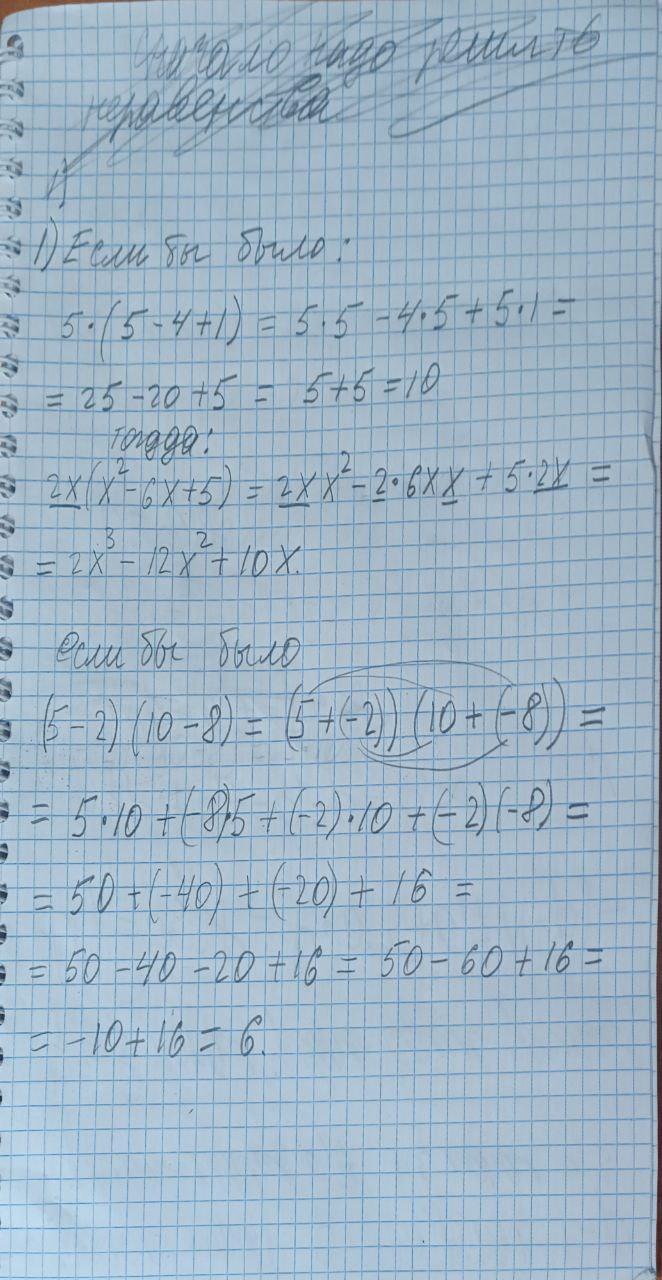 Сначало надо решить
неравенства
1)
1) Если бы было:
5·(5-4+1) = 5·5 - 4·5 + 5·1 =
= 25 - 20 + 5 = 5 + 5 = 10
тогда:
2x(x²-6x+5) = 2x x² - 2·6x x + 5·2x =
= 2x³ - 12x² + 10x.
если бы было
(5-2)(10-8) = (5+(-2))(10+(-8)) =
= 5·10 + (-8)·5 + (-2)·10 + (-2)(-8) =
= 50 + (-40) + (-20) + 16 =
= 50 - 40 - 20 + 16 = 50 - 60 + 16 =
= -10 + 16 = 6.